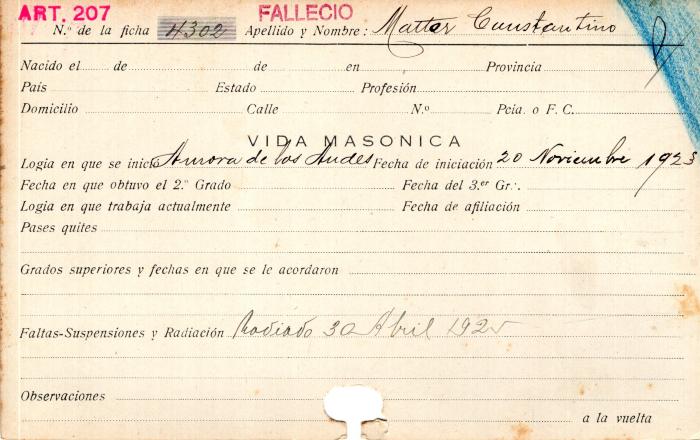 ART. 207 FALLECIO
N.º de la ficha 4302 Apellido y Nombre: Matter Constantino
Nacido el de de en Provincia
País Estado Profesión
Domicilio Calle N.º Pcia. o F. C.
VIDA MASONICA
Logia en que se inició Aurora de los Andes Fecha de iniciación 20 Noviembre 1923
Fecha en que obtuvo el 2.º Grado Fecha del 3.er Gr∴
Logia en que trabaja actualmente Fecha de afiliación
Pases quites
Grados superiores y fechas en que se le acordaron
Faltas-Suspensiones y Radiación Radiado 30 Abril
Observaciones
a la vuelta